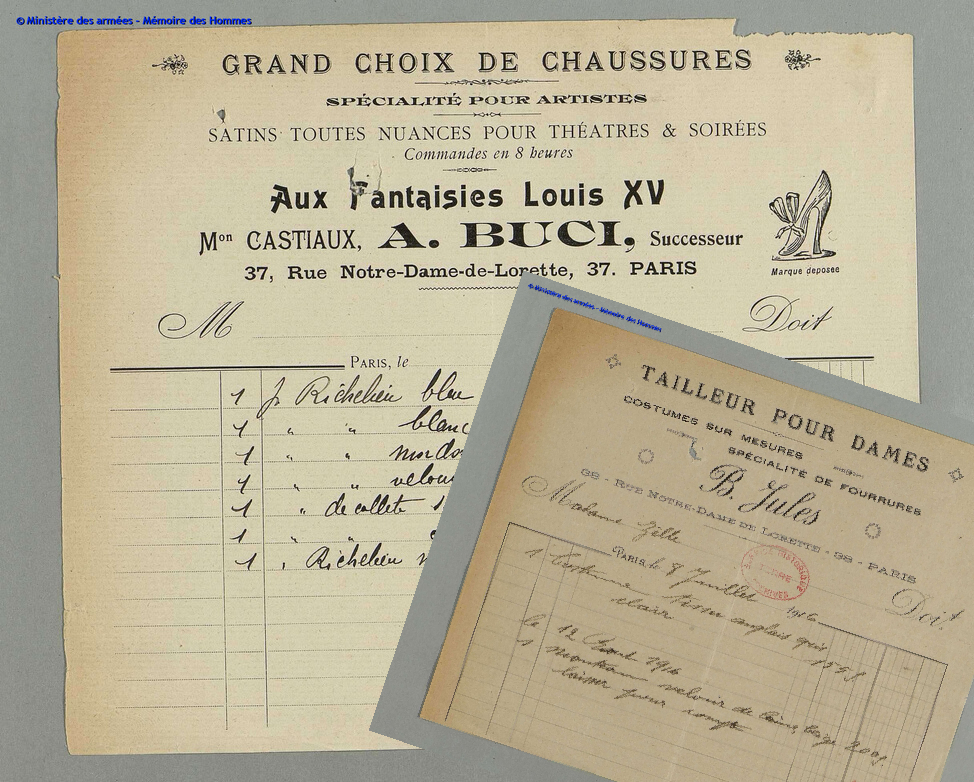 © Ministère des armées - Mémoire des Hommes
GRAND CHOIX DE CHAUSSURES
SPÉCIALITÉ POUR ARTISTES
SATINS TOUTES NUANCES POUR THÉATRES & SOIRÉES
Commandes en 8 heures
Aux Fantaisies Louis XV
Mon CASTIAUX, A. BUCI, Successeur
37, Rue Notre-Dame-de-Lorette, 37. PARIS
Marque deposée
M Doit
PARIS, le
1 p Richelieu bleu
1 " " blanc
1 " " mordo
1 " " velou
1 " decollete
1 " "
1 " Richelieu
© Ministère des armées - Mémoire des Hommes
TAILLEUR POUR DAMES
COSTUMES SUR MESURES
SPÉCIALITÉ DE FOURRURES
B. Jules
38 - RUE NOTRE-DAME DE LORETTE - 38 - PARIS
Madame Zelle Doit
PARIS, le 8 Juillet 1916
1 Costume tissu anglais gris
clair
le 12 Aout 1916
1 manteau velour de laine, beige 200f
laisser pour compte